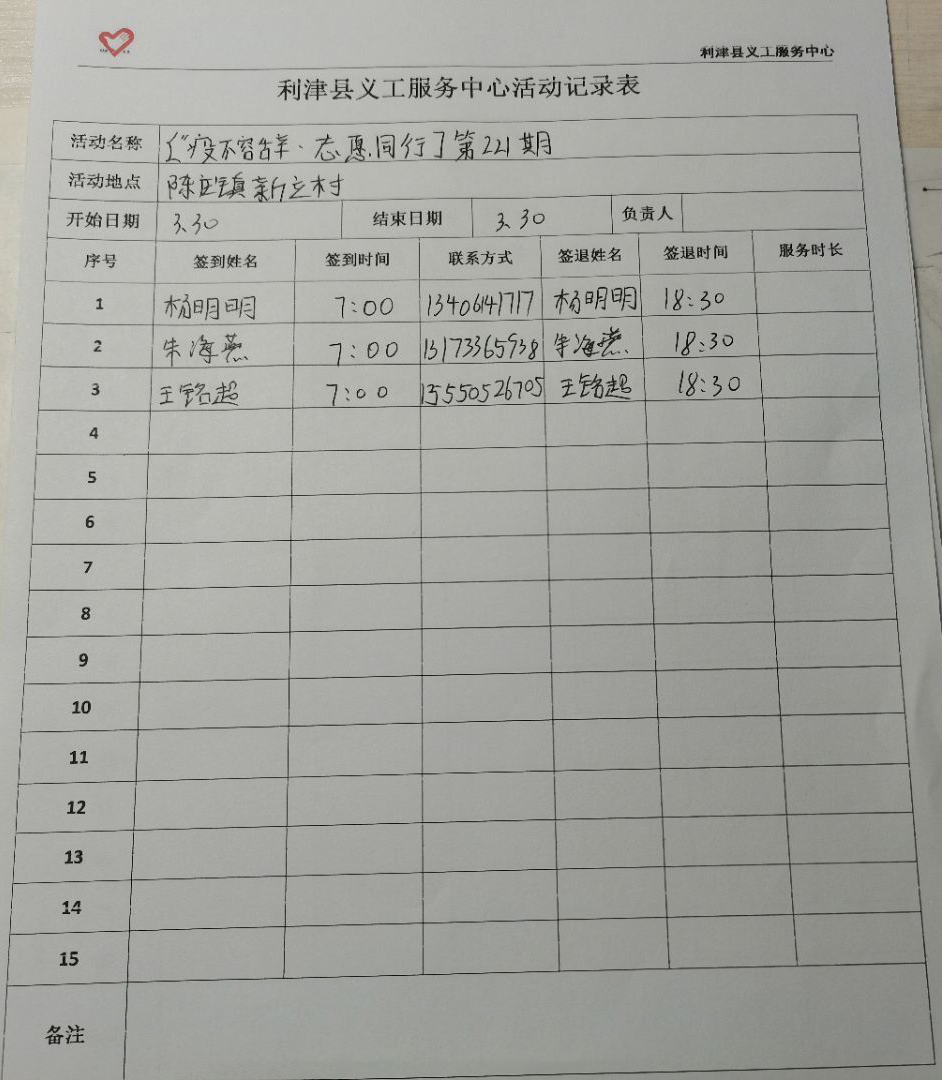 利津县义工服务中心
利津县义工服务中心活动记录表
活动名称 《"疫不容辞·志愿同行】第221期
活动地点 陈庄镇新立村
开始日期 3.30 结束日期 3.30 负责人
序号 签到姓名 签到时间 联系方式 签退姓名 签退时间 服务时长
1 杨明明 7:00 13406141717 杨明明 18:30
2 朱海燕 7:00 13173365938 朱海燕 18:30
3 王铭超 7:00 13550526705 王铭超 18:30
4
5
6
7
8
9
10
11
12
13
14
15
备注